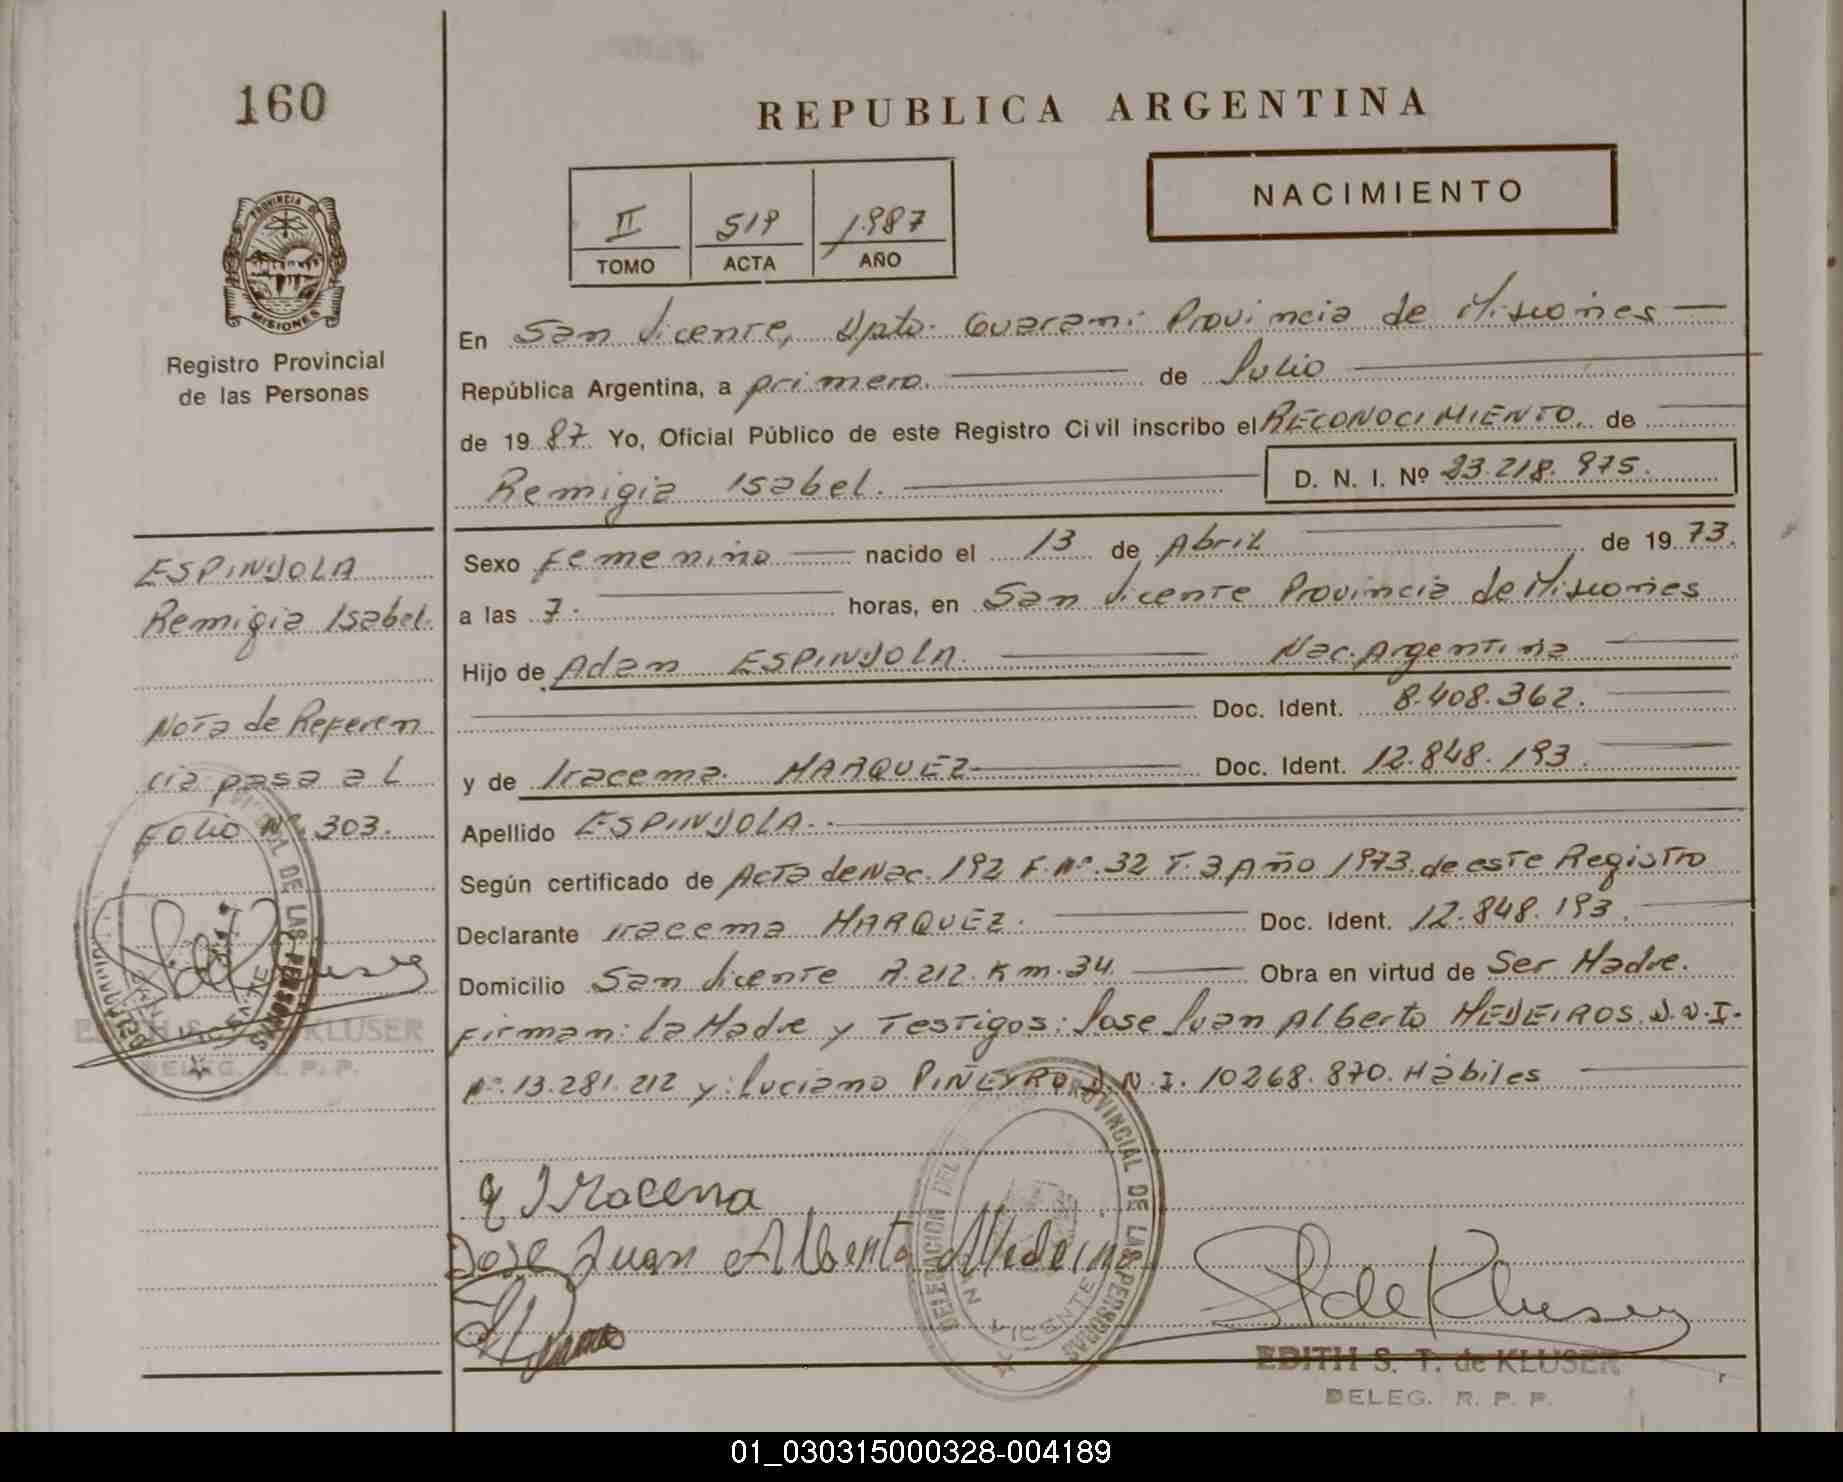 160
REPUBLICA ARGENTINA
NACIMIENTO
II 519 1987
TOMO ACTA AÑO
PROVINCIA DE
MISIONES
Registro Provincial
de las Personas
En San Vicente, Dpto. Guarani Provincia de Misiones
República Argentina, a primero. de Julio
de 19 87. Yo, Oficial Público de este Registro Civil inscribo el RECONOCIMIENTO. de
Remigia Isabel. D. N. I. Nº 23.218.975.
Sexo Femenino nacido el 13 de Abril de 19 73.
a las 7. horas, en San Vicente Provincia de Misiones
Hijo de Adan ESPINDOLA. Nac. Argentina
Doc. Ident. 8.408.362.
y de Iracema. MARQUEZ Doc. Ident. 12.848.193.
Apellido ESPINDOLA.
Según certificado de Acta de Nac. 192 F. Nº. 32 T. 3 Año 1973. de este Registro
Declarante Iracema MARQUEZ. Doc. Ident. 12.848.193.
Domicilio San Vicente R. 212. Km. 34. Obra en virtud de Ser Madre.
Firman: La Madre y Testigos: Jose Juan Alberto MEDEIROS. D.N.I.
Nº. 13.281.212 y: Luciano PIÑEYRO D.N.I. 10268.870. Hábiles
ESPINDOLA
Remigia Isabel.
Nota de Referen
cia pasa al
Folio Nº. 303.
EDITH S. KLUSER
DELEG. R. P. P.
Iracema
Jose Juan Alberto Medeiro
DELEGACION DEL REGISTRO PROVINCIAL DE LAS PERSONAS
SAN VICENTE
EDITH S. T. de KLUSER
DELEG. R. P. P.
01_030315000328-004189